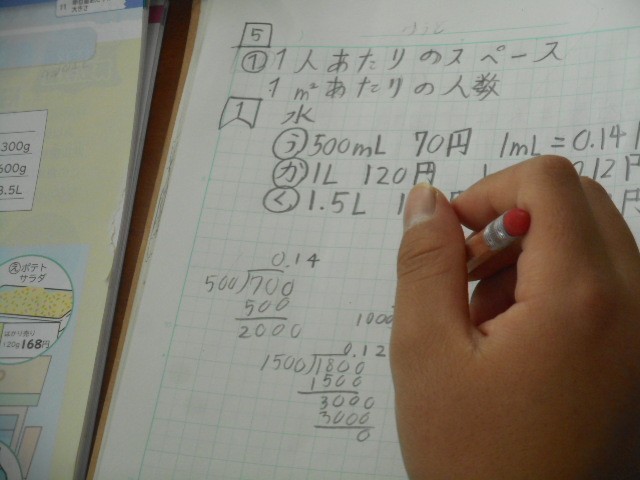 5
① 1人あたりのスペース
1m²あたりの人数
1 水
う 500mL 70円 1mL=0.14
か 1L 120円 0.12円
く 1.5L 1
0.14
500)700
500
2000
1000
0.12
1500)1800
1500
3000
3000
0
300g
600g
3.5L
え ポテト
サラダ
はかり売り
120g 168円